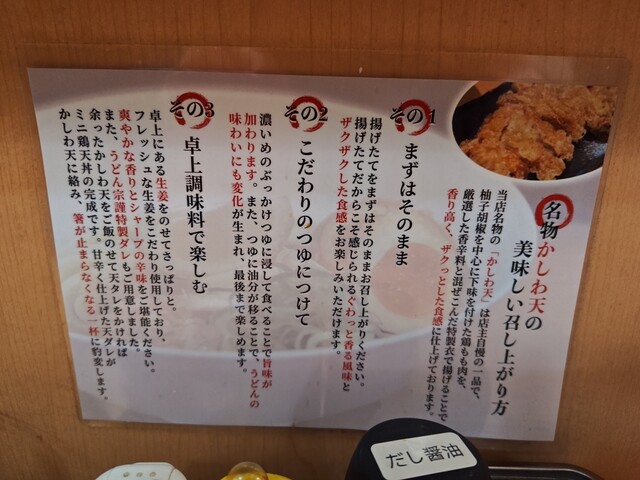 名物かしわ天の
美味しい召し上がり方
当店名物の「かしわ天」は店主自慢の一品で、
柚子胡椒を中心に下味を付けた鶏もも肉を、
厳選した香辛料と混ぜこんだ特製衣で揚げることで
香り高く、ザクっとした食感に仕上げております。
その1
まずはそのまま
揚げたてをまずはそのままお召し上がりください。
揚げたてだからこそ感じられるぐわっと香る風味と
ザクザクした食感をお楽しみいただけます。
その2
こだわりのつゆにつけて
濃いめのぶっかけつゆに浸して食べることで旨味が
加わります。また、つゆに油分が移ることで、うどんの
味わいにも変化が生まれ、最後まで楽しめます。
その3
卓上調味料で楽しむ
卓上にある生姜をのせてさっぱりと。
フレッシュな生姜をこだわり使用しており、
爽やかな香りとシャープの辛味をご堪能ください。
また、うどん宗謹特製ダレもご用意しました。
余ったかしわ天をご飯のせて天ダレをかければ
ミニ鶏天丼の完成です。甘辛く仕上げた天ダレが
かしわ天に絡み、箸が止まらなくなる一杯に豹変します。
だし醤油